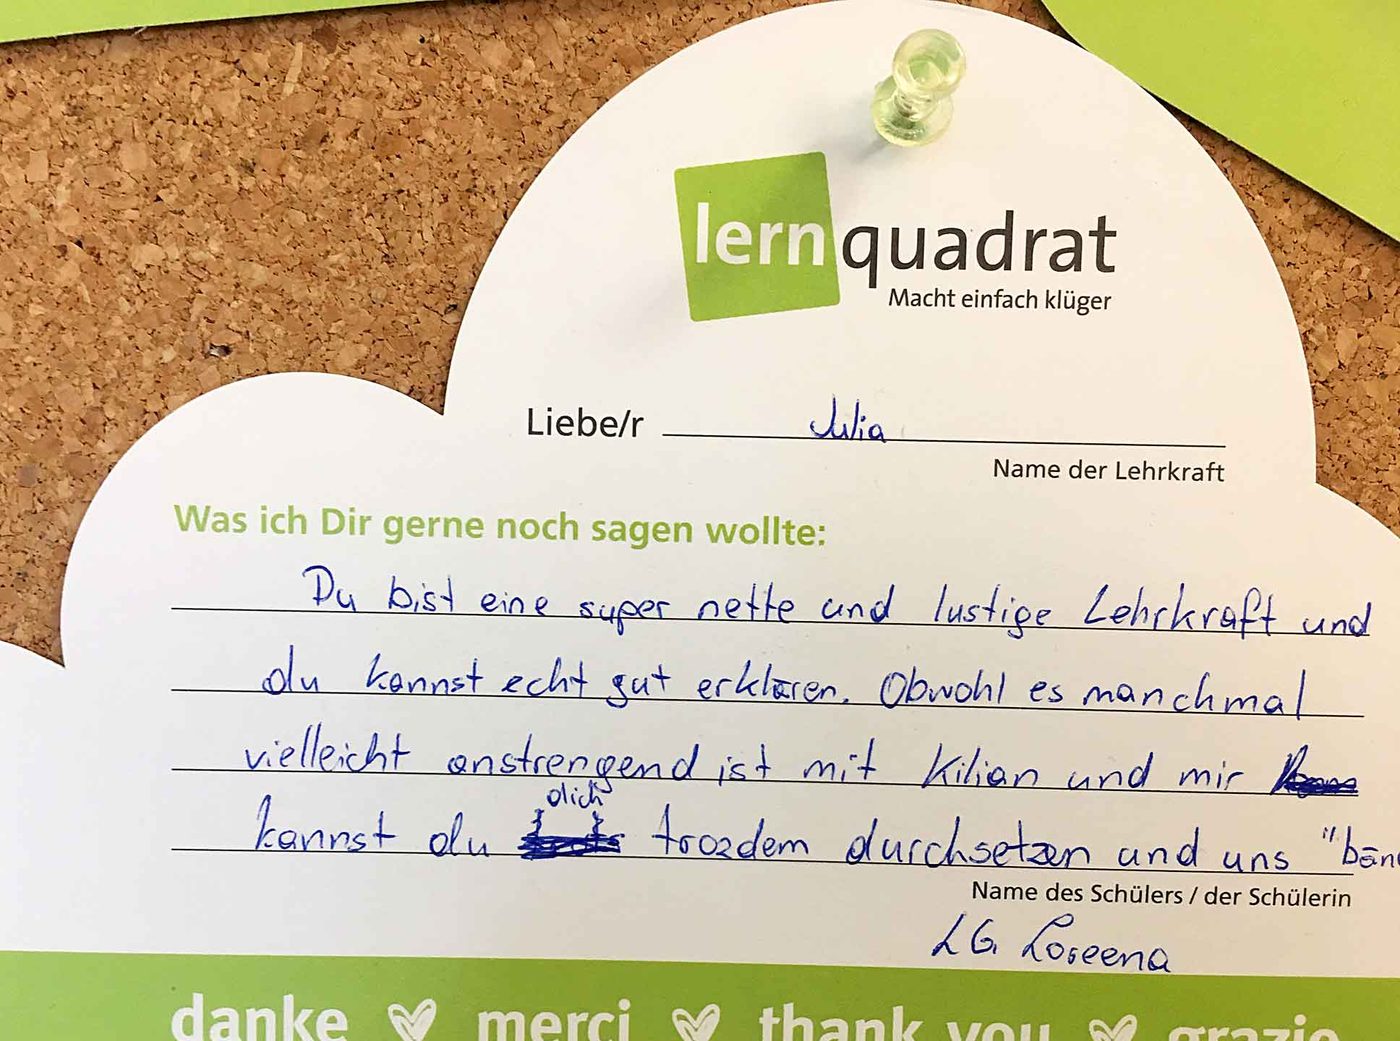 lernquadrat
Macht einfach klüger
Liebe/r Julia
Name der Lehrkraft
Was ich Dir gerne noch sagen wollte:
Du bist eine super nette und lustige Lehrkraft und
du kannst echt gut erklären. Obwohl es manchmal
vielleicht anstrengend ist mit Kilian und mir
dich
kannst du trozdem durchsetzen und uns "bän
Name des Schülers / der Schülerin
LG Loseena
danke merci thank you grazie